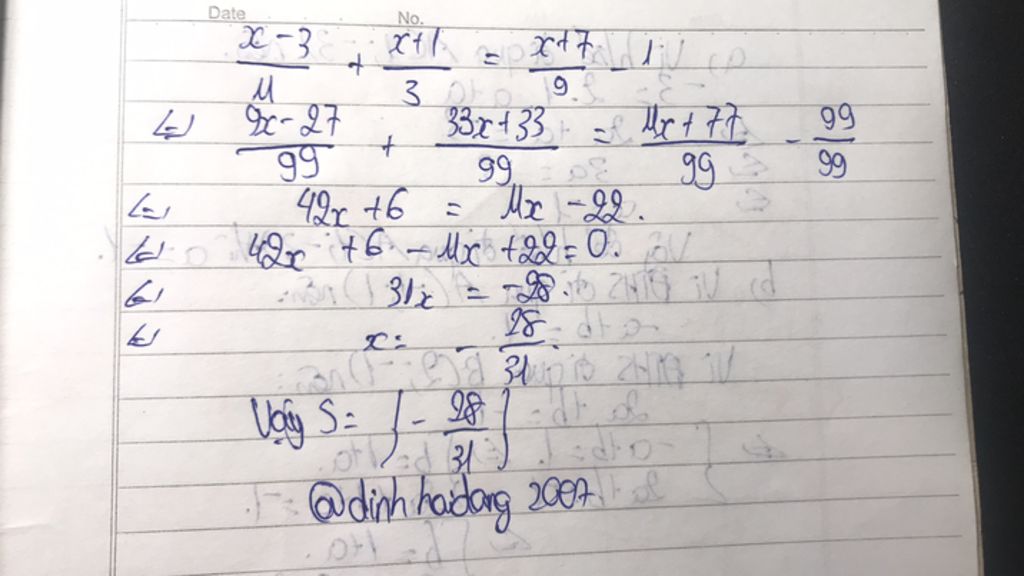 Date No.
x - 3 / 11 + x + 1 / 3 = x + 7 / 9 - 1
⇔ 9x - 27 / 99 + 33x + 33 / 99 = 11x + 77 / 99 - 99 / 99
⇔ 42x + 6 = 11x - 22.
⇔ 42x + 6 - 11x + 22 = 0.
⇔ 31x = -28.
⇔ x = - 28 / 31.
Vậy S = { - 28 / 31 }
@dinhhaidang 2007